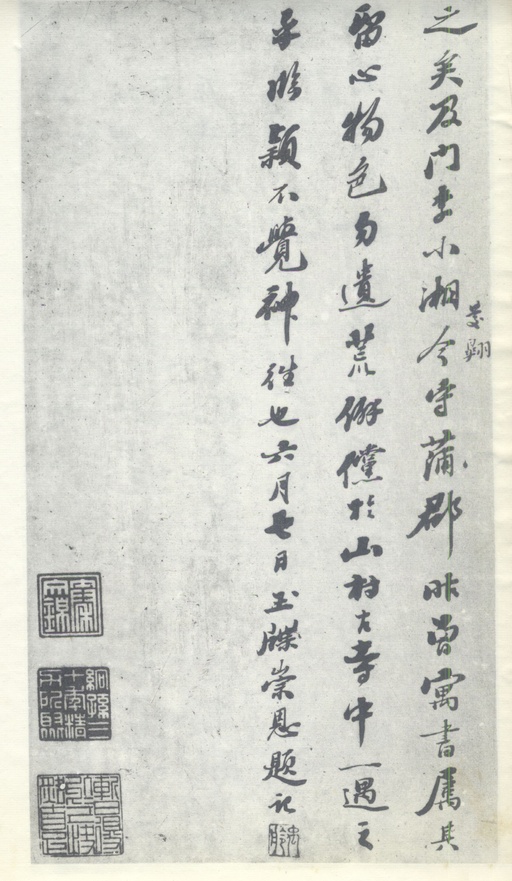 之矣及門李小湘今守蒲郡昨曾寓書屬其
留心物色勿遺荒僻儻於山村古寺中一遇之
乎臨穎不覺神往也六月七日玉牒崇恩題記